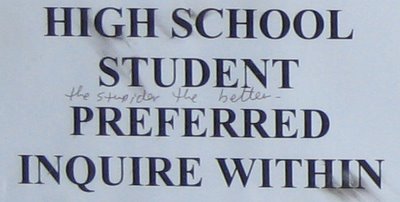 HIGH SCHOOL
STUDENT
the stupider the better-
PREFERRED
INQUIRE WITHIN